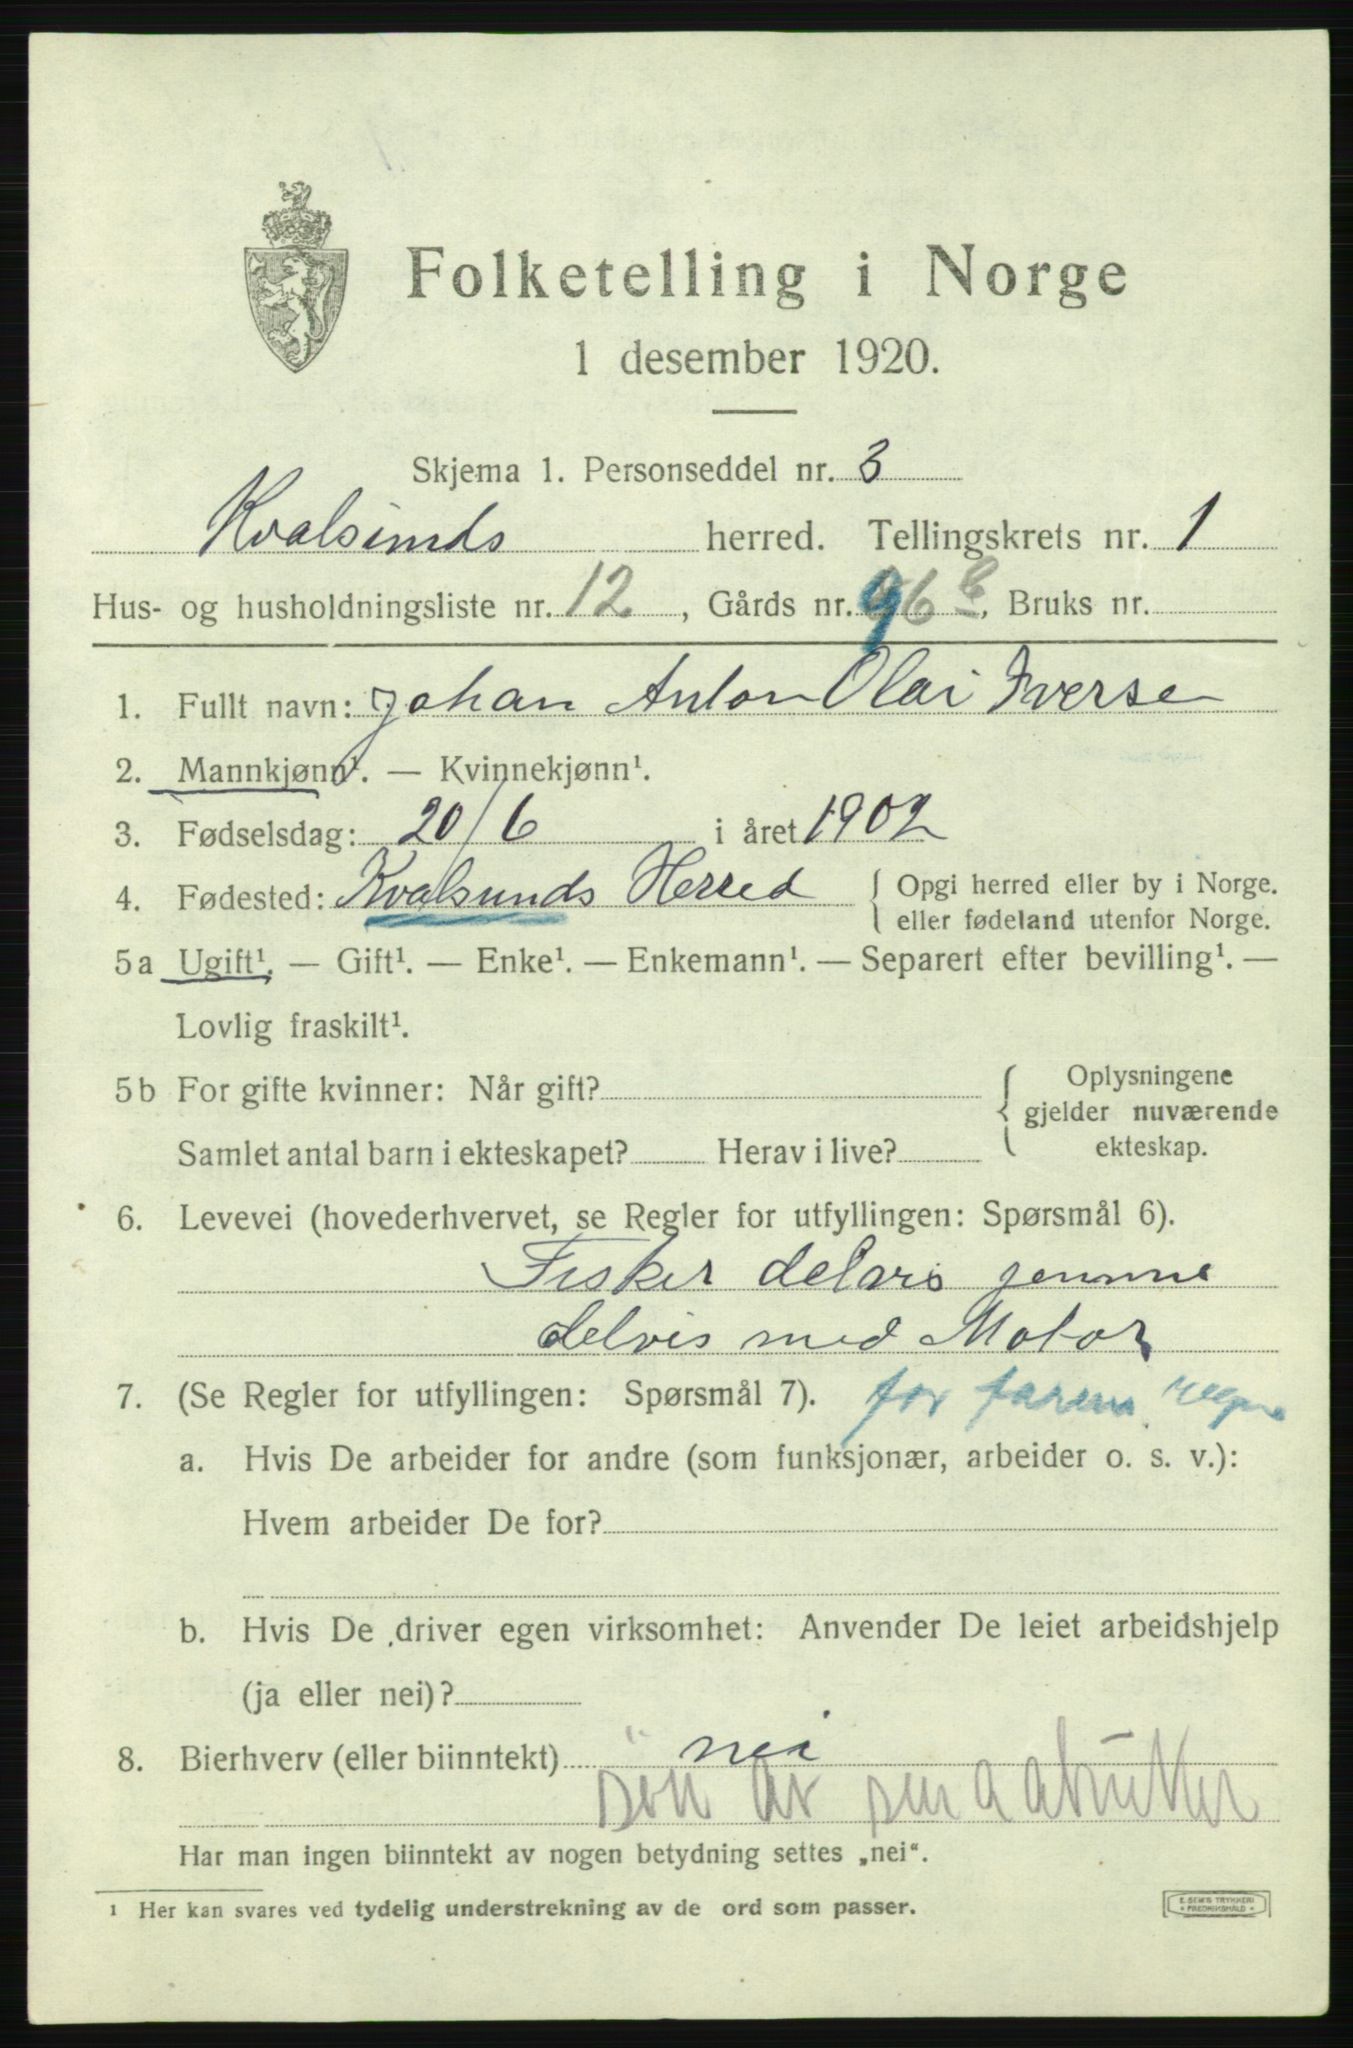 Folketelling i Norge
1 desember 1920.
Skjema 1. Personseddel nr. 3
Kvalsunds herred. Tellingskrets nr. 1
Hus- og husholdningsliste nr. 12, Gårds nr. 96, Bruks nr.
1. Fullt navn: Johan Anton Olai Iversen
2. Mannkjønn¹. — Kvinnekjønn¹.
3. Fødselsdag: 20/6 i året 1902
4. Fødested: Kvalsunds Herred { Opgi herred eller by i Norge.
eller fødeland utenfor Norge.
5a Ugift¹. — Gift¹. — Enke¹. — Enkemann¹. — Separert efter bevilling¹. —
Lovlig fraskilt¹.
5b For gifte kvinner: Når gift? { Oplysningene
gjelder nuværende
Samlet antal barn i ekteskapet? Herav i live? ekteskap.
6. Levevei (hovederhvervet, se Regler for utfyllingen: Spørsmål 6).
Fisker delvis
delvis med Motor
7. (Se Regler for utfyllingen: Spørsmål 7). for farens regn
a. Hvis De arbeider for andre (som funksjonær, arbeider o. s. v.):
Hvem arbeider De for?
b. Hvis De driver egen virksomhet: Anvender De leiet arbeidshjelp
(ja eller nei)?
8. Bierhverv (eller biinntekt) nei
søn av smaabruker
Har man ingen biinntekt av nogen betydning settes „nei“.
¹ Her kan svares ved tydelig understrekning av de ord som passer.
E. SEM'S TRYKKERI
• FREDRIKSHALD •